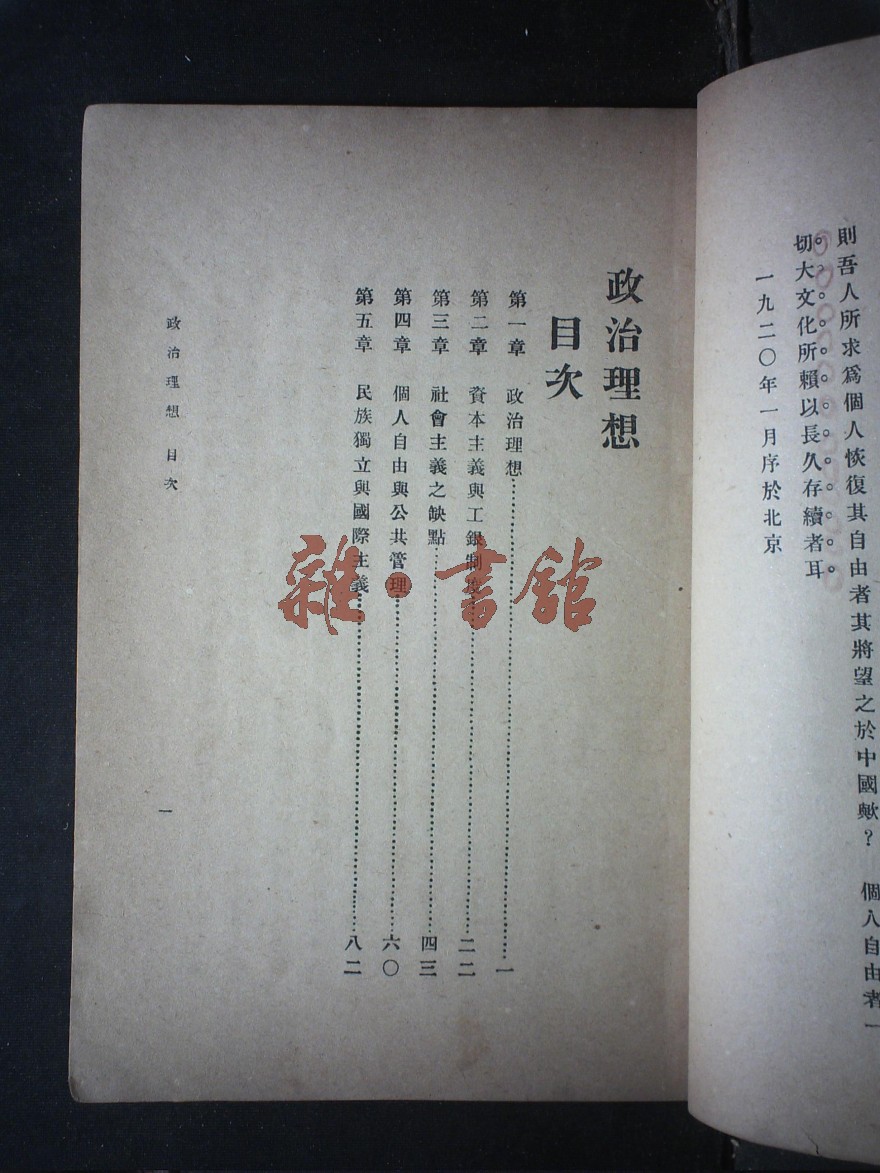 則吾人所求爲個人恢復其自由者其將望之於中國歟？　個人自由者一
切大文化所賴以長久存續者耳
一九二〇年一月序於北京
政治理想
目次
第一章　政治理想……一
第二章　資本主義與工銀制度……二二
第三章　社會主義之缺點……四三
第四章　個人自由與公共管理……六〇
第五章　民族獨立與國際主義……八二
政治理想　目次
一
雜・書館